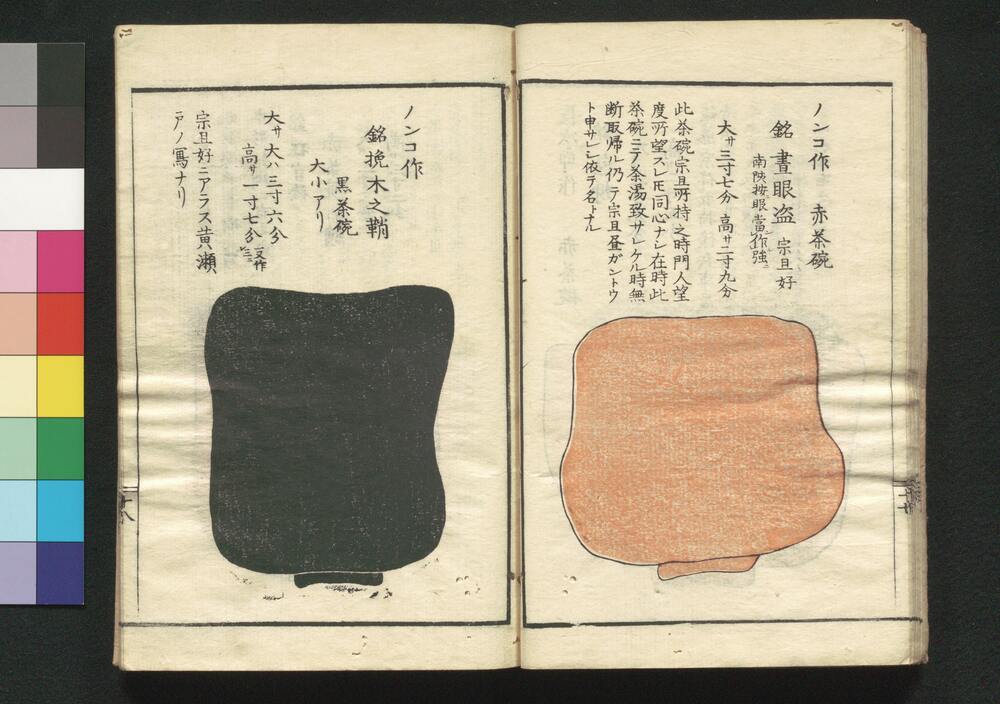 ノンコ作　赤茶碗
銘　晝眼盗　宗旦好
大サ三寸七分　高サ二寸九分
此茶碗宗旦所持之時門人望
度所望スレ𪜈同心ナシ在時此
茶碗ニテ茶湯致サレケル時無
断取帰ル仍テ宗旦昼ガントウ
ト申サレシ依テ名トナル
ノンコ作
銘　挽木之鞘
黒茶碗
大小アリ
大サ大ハ三寸六分
高サ一寸七分
宗旦好ニアラス黄瀬
戸ノ寫ナリ